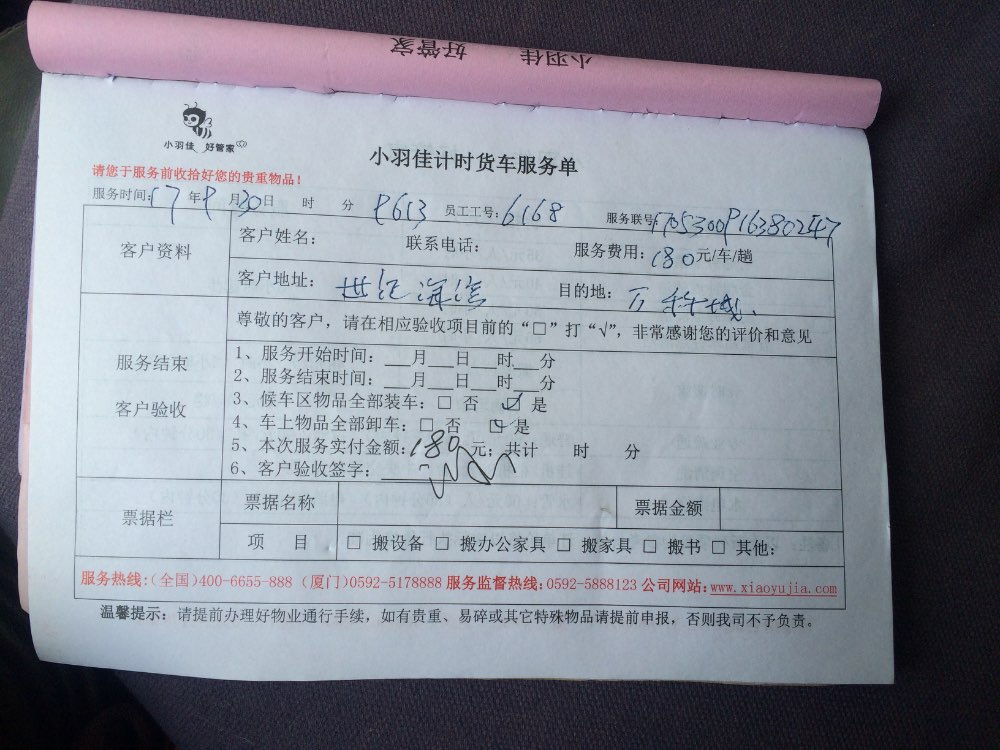 小羽佳 好管家
小羽佳 好管家
小羽佳计时货车服务单
请您于服务前收拾好您的贵重物品！
服务时间：17年9月30日 时 分 9613 员工工号：6168 服务联号
客户资料
客户姓名： 联系电话： 服务费用：180元/车/趟
客户地址：世纪海湾 目的地：万科城
服务结束
客户验收
尊敬的客户，请在相应验收项目前的“□”打“√”，非常感谢您的评价和意见
1、服务开始时间：___月___日___时___分
2、服务结束时间：___月___日___时___分
3、候车区物品全部装车：□ 否 ☑ 是
4、车上物品全部卸车：□ 否 ☑ 是
5、本次服务实付金额：180元；共计 时 分
6、客户验收签字：
票据栏
票据名称 票据金额
项 目 □ 搬设备 □ 搬办公家具 □ 搬家具 □ 搬书 □ 其他：
服务热线:(全国)400-6655-888 (厦门)0592-5178888 服务监督热线:0592-5888123 公司网站:www.xiaoyujia.com
温馨提示：请提前办理好物业通行手续，如有贵重、易碎或其它特殊物品请提前申报，否则我司不予负责。